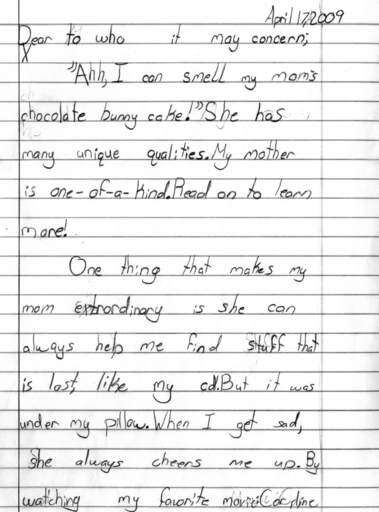 April 17,2009
Dear to who it may concern;
"Ahh, I can smell my mom's
chocolate bunny cake!" She has
many unique qualities. My mother
is one-of-a-kind. Read on to learn
more!
One thing that makes my
mom extrordinary is she can
always help me find stuff that
is lost, like my cd. But it was
under my pillow. When I get sad,
she always cheers me up. By
watching my favorite movie: